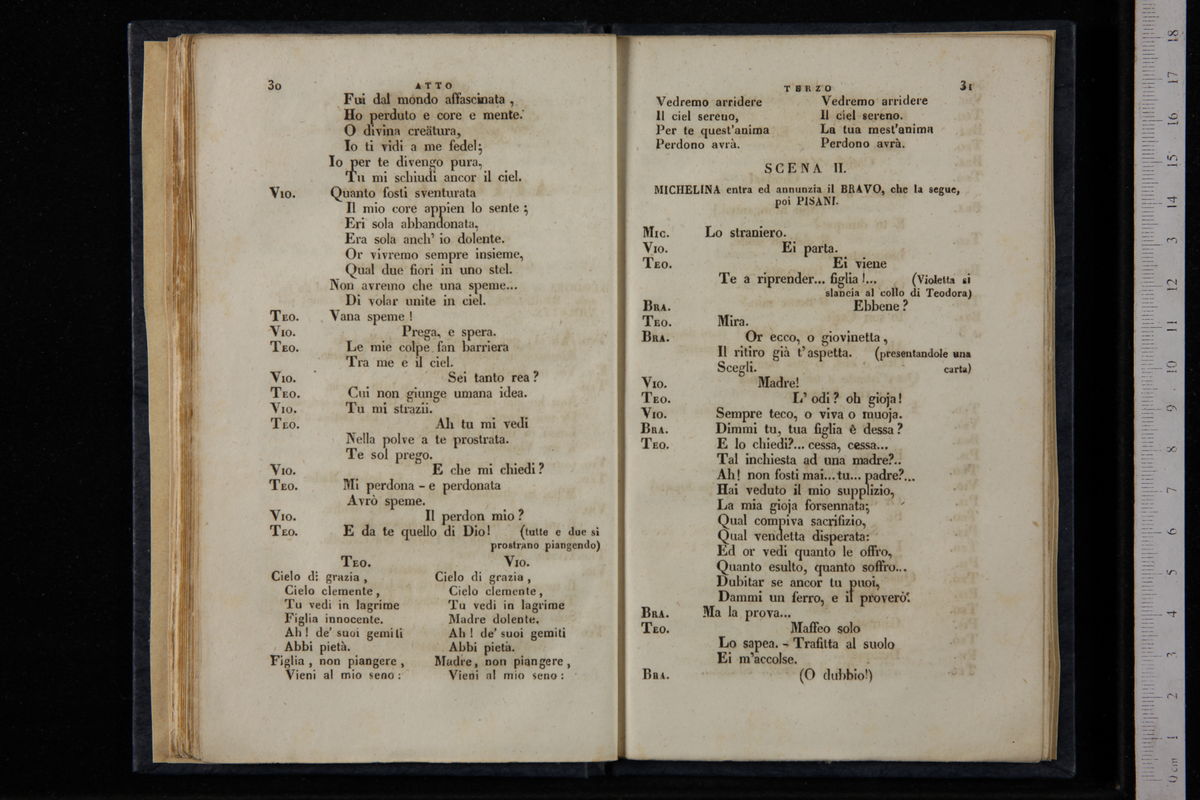 30 ATTO
Fui dal mondo affascinata ,
Ho perduto e core e mente.
O divina creätura,
Io ti vidi a me fedel;
Io per te divengo pura,
Tu mi schiudi ancor il ciel.
Vio. Quanto fosti sventurata
Il mio core appien lo sente ;
Eri sola abbandonata,
Era sola anch' io dolente.
Or vivremo sempre insieme,
Qual due fiori in uno stel.
Non avremo che una speme...
Di volar unite in ciel.
Teo. Vana speme !
Vio. Prega, e spera.
Teo. Le mie colpe fan barriera
Tra me e il ciel.
Vio. Sei tanto rea ?
Teo. Cui non giunge umana idea.
Vio. Tu mi strazii.
Teo. Ah tu mi vedi
Nella polve a te prostrata.
Te sol prego.
Vio. E che mi chiedi ?
Teo. Mi perdona - e perdonata
Avrò speme.
Vio. Il perdon mio ?
Teo. E da te quello di Dio! (tutte e due si
prostrano piangendo)
Teo.
Cielo di grazia ,
Cielo clemente ,
Tu vedi in lagrime
Figlia innocente.
Ah ! de' suoi gemiti
Abbi pietà.
Figlia , non piangere ,
Vieni al mio seno :
Vio.
Cielo di grazia ,
Cielo clemente ,
Tu vedi in lagrime
Madre dolente.
Ah ! de' suoi gemiti
Abbi pietà.
Madre, non piangere ,
Vieni al mio seno :
TERZO 31
Vedremo arridere
Il ciel sereno,
Per te quest'anima
Perdono avrà.
Vedremo arridere
Il ciel sereno.
La tua mest'anima
Perdono avrà.
SCENA II.
MICHELINA entra ed annunzia il BRAVO, che la segue,
poi PISANI.
Mic. Lo straniero.
Vio. Ei parta.
Teo. Ei viene
Te a riprender... figlia !... (Violetta si
slancia al collo di Teodora)
Bra. Ebbene ?
Teo. Mira.
Bra. Or ecco, o giovinetta ,
Il ritiro già t'aspetta. (presentandole una
Scegli. carta)
Vio. Madre!
Teo. L' odi ? oh gioja!
Vio. Sempre teco, o viva o muoja.
Bra. Dimmi tu, tua figlia è dessa ?
Teo. E lo chiedi?... cessa, cessa...
Tal inchiesta ad una madre?..
Ah! non fosti mai... tu... padre?...
Hai veduto il mio supplizio,
La mia gioja forsennata;
Qual compiva sacrifizio,
Qual vendetta disperata:
Ed or vedi quanto le offro,
Quanto esulto, quanto soffro...
Dubitar se ancor tu puoi,
Dammi un ferro, e il proverò.
Bra. Ma la prova...
Teo. Maffeo solo
Lo sapea. - Trafitta al suolo
Ei m'accolse.
Bra. (O dubbio!)
0 cm 1 2 3 4 5 6 7 8 9 10 11 12 13 14 15 16 17 18